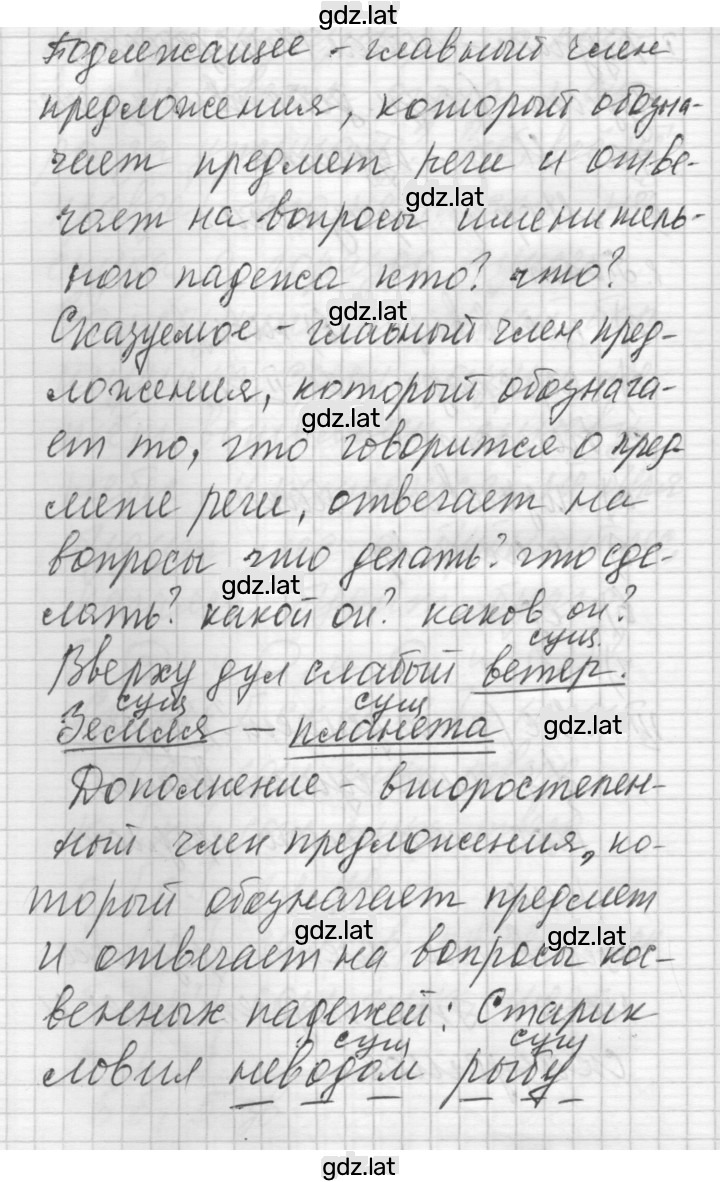 gdz.lat
Подлежащее - главный член
предложения, который обозна-
чает предмет речи и отве-
gdz.lat
чает на вопросы именитель-
ного падежа кто? что?
gdz.lat
Сказуемое - главный член пред-
ложения, который обознача-
gdz.lat
ет то, что говорится о пред-
мете речи, отвечает на
вопросы что делать? что сде-
gdz.lat
лать? какой он? каков он?
сущ.
Вверху дул слабый ветер.
сущ сущ
Земля – планета
gdz.lat
Дополнение - второстепен-
ный член предложения, ко-
торый обозначает предмет
gdz.lat gdz.lat
и отвечает на вопросы кос-
венных падежей: Старик
сущ сущ
ловил неводом рыбу
gdz.lat